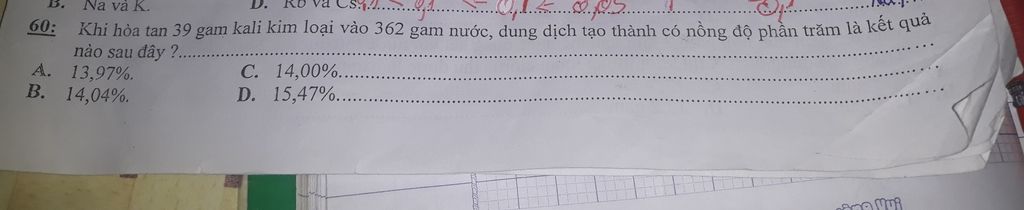 B. Na và K. D. Rb và Cs
60: Khi hòa tan 39 gam kali kim loại vào 362 gam nước, dung dịch tạo thành có nồng độ phần trăm là kết quả
nào sau đây ?
A. 13,97%. C. 14,00%.
B. 14,04%. D. 15,47%.